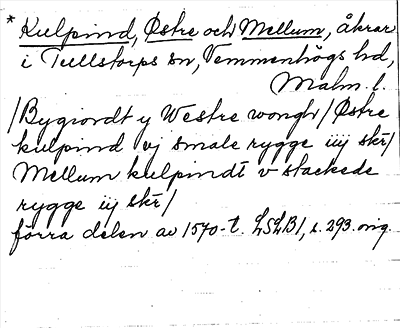 * Kulpind, Østre och Mellum, åkrar
i Tullstorps sn, Vemmenhögs hd,
Malm. l.
/Bygiordt y Westre wongh/Østre
kulpind vj smale rygge iiij skr/
Mellum kulpindt v stackede
rygge iij skr/
förra delen av 1570-t. LSLB1, s. 293. orig.